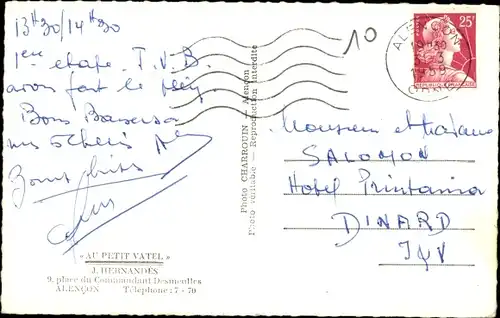 13H30/14H30
1ère etape T.V.B.
avons fait le plein
Bons Baisers
Photo CHARROUIN — Alençon
Photo véritable — Reproduction interdite
10
ALENÇON
ORNE
25F
Monsieur et Madame
SALOMON
Hotel Printania
DINARD
I&V
« AU PETIT VATEL »
J. HERNANDÈS
9, place du Commandant Desmeulles
ALENÇON Téléphone : 7 - 70